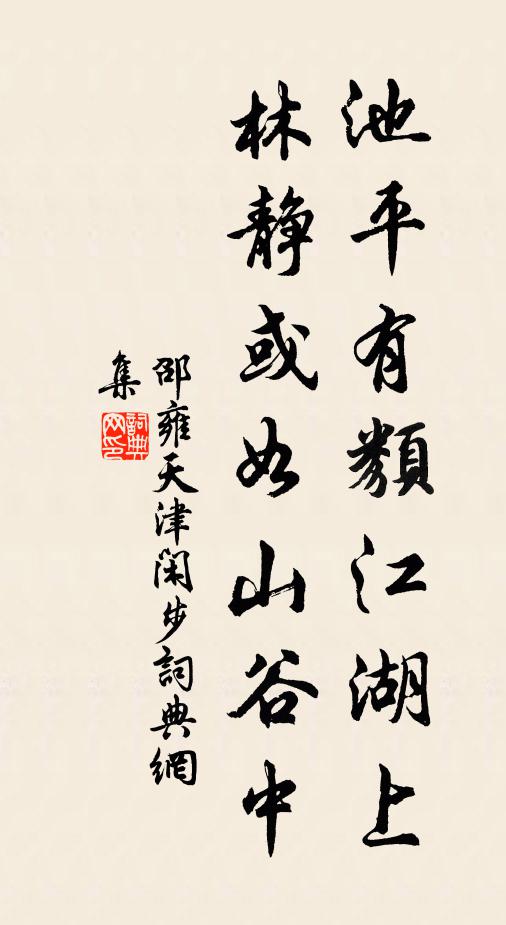 池平有類江湖上
林靜或如山谷中
邵雍天津閑步詞典網
集
詞典
网印